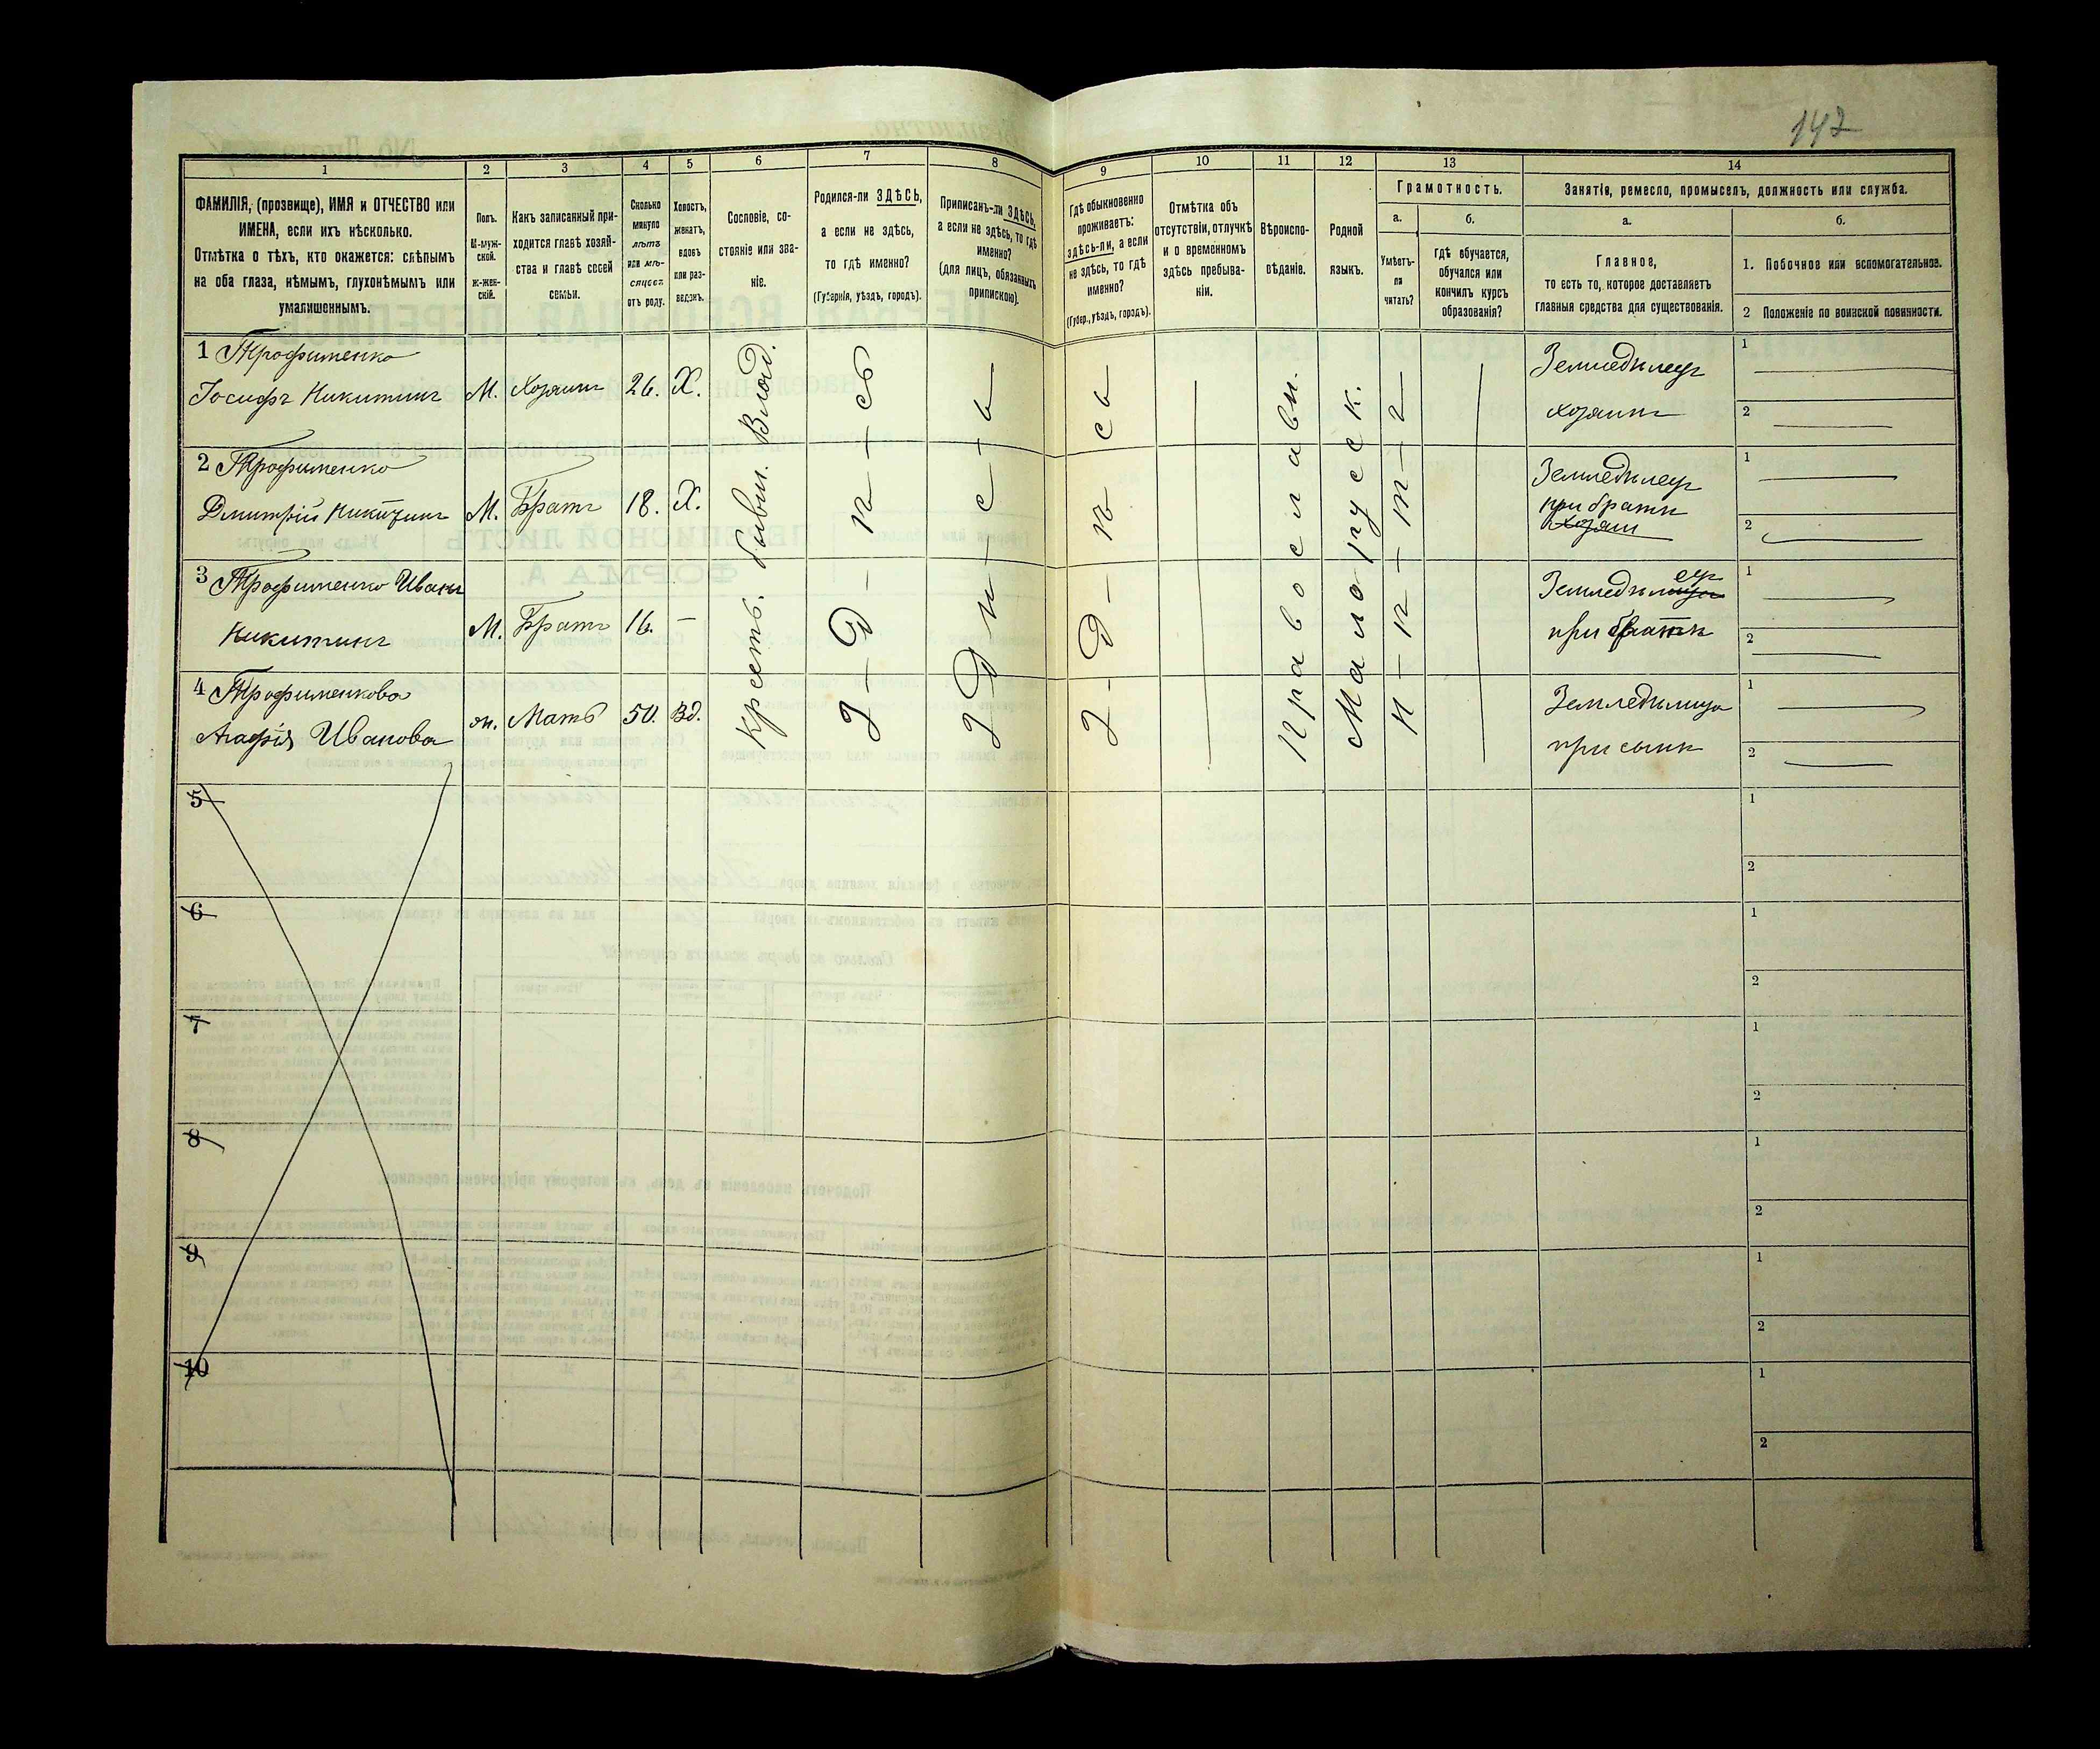 147
1 2 3 4 5 6 7 8 9 10 11 12 13 14
ФАМИЛІЯ, (прозвище), ИМЯ и ОТЧЕСТВО или
ИМЕНА, если ихъ нѣсколько.
Отмѣтка о тѣхъ, кто окажется: слѣпымъ
на оба глаза, нѣмымъ, глухонѣмымъ или
умалишеннымъ.
Полъ.
М-муж-
ской.
Ж-жен-
скій.
Какъ записанный при-
ходится главѣ хозяй-
ства и главѣ своей
семьи.
Сколько
минуло
лѣтъ
или мѣ-
сяцевъ
отъ роду.
Холостъ,
женатъ,
вдовъ
или раз-
веденъ.
Сословіе, со-
стояніе или зва-
ніе.
Родился-ли ЗДѢСЬ,
а если не здѣсь,
то гдѣ именно?
(Губернія, уѣздъ, городъ).
Приписанъ-ли ЗДѢСЬ,
а если не здѣсь, то гдѣ
именно?
(для лицъ, обязанныхъ
припискою).
Гдѣ обыкновенно
проживаетъ:
здѣсь-ли, а если
не здѣсь, то гдѣ
именно?
(Губер., уѣздъ, городъ).
Отмѣтка объ
отсутствіи, отлучкѣ
и о временномъ
здѣсь пребыва-
ніи.
Вѣроиспо-
вѣданіе.
Родной
языкъ.
Грамотность.
а.
Умѣетъ-
ли
читать?
б.
Гдѣ обучается,
обучался или
кончилъ курсъ
образованія?
Занятія, ремесло, промыселъ, должность или служба.
а.
Главное,
то есть то, которое доставляетъ
главныя средства для существованія.
б.
1. Побочное или вспомогательное.
2 Положеніе по воинской повинности.
1 Трофименко
Іосифъ Никитинъ М. Хозяинъ 26. Х.
Земледѣлецъ
хозяинъ
1
2
2 Трофименко
Дмитрій Никитинъ М. Братъ 18. Х.
Земледѣлецъ
при братѣ
хозяи
1
2
3 Трофименко Иванъ
Никитинъ М. Братъ 16. —
Земледѣлецъ
при братѣ
1
2
4 Трофименкова
Агафія Иванова ж. Мать 50. Вд.
Земледѣлица
при сынѣ
1
2
Крестъ. бывш. Влад.
з — д — п — сь
з д п — с — ь
з — д — п сь
Православн.
Малорусск.
н — п — т — г
5
1
2
6
1
2
7
1
2
8
1
2
9
1
2
10
1
2